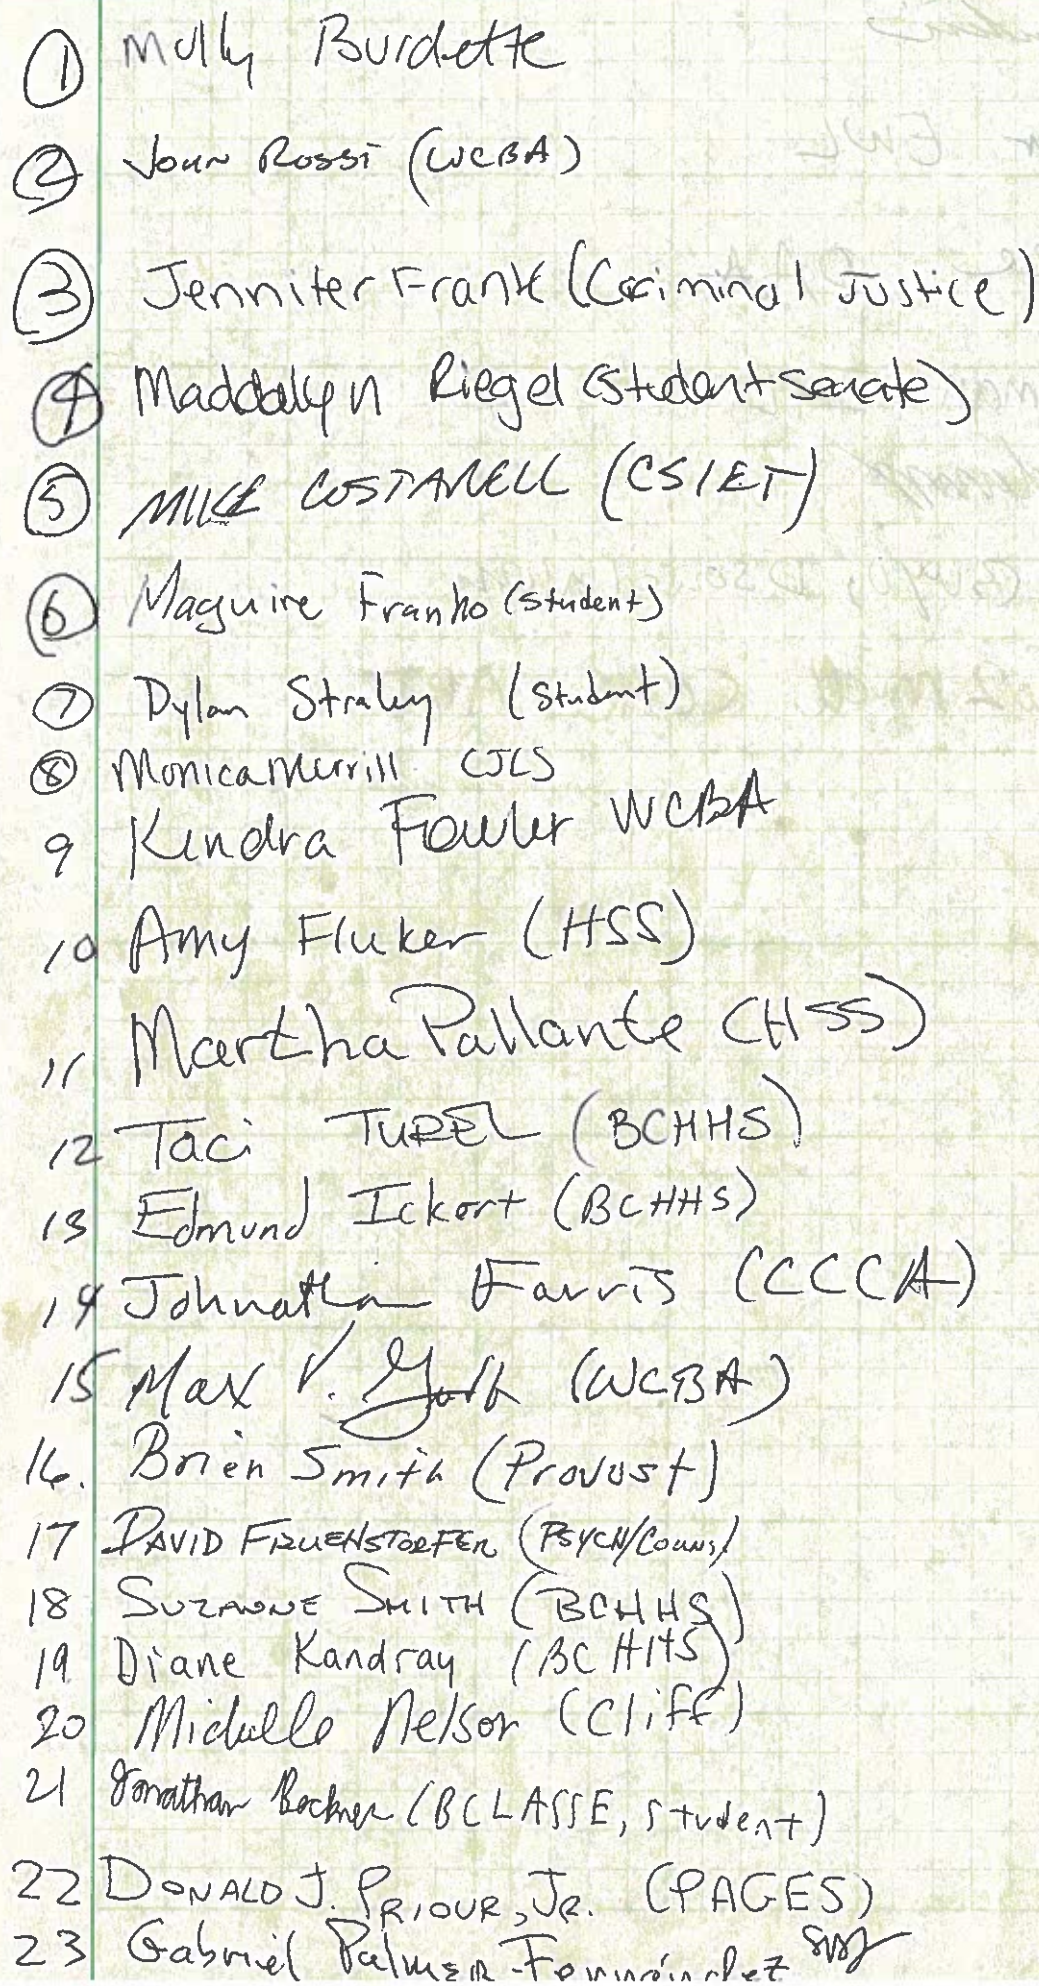 1 Molly Burdette
2 John Rossi (WCBA)
3 Jenniter Frank (Criminal Justice)
4 Maddalyn Riegel (Student Senate)
5 MIKE COSTARELL (CSIET)
6 Maguire Franko (student)
7 Dylan Straley (student)
8 Monica Merrill CJCS
9 Kendra Fowler WCBA
10 Amy Fluker (HSS)
11 Martha Pallante (HSS)
12 Taci TUREL (BCHHS)
13 Edmund Ickert (BCHHS)
14 Johnathan Farris (CCCA)
15 Max V. (WCBA)
16. Brien Smith (Provost)
17 DAVID FRUEHSTORFER (PSYCH/COUNS)
18 SUZANNE SMITH (BCHHS)
19 Diane Kandray (BCHHS)
20 Michelle Nelson (Cliff)
21 Jonathan (BCLASSE, student)
22 DONALD J. PRIOUR, JR. (PAGES)
23 Gabriel Palmer-Fernández